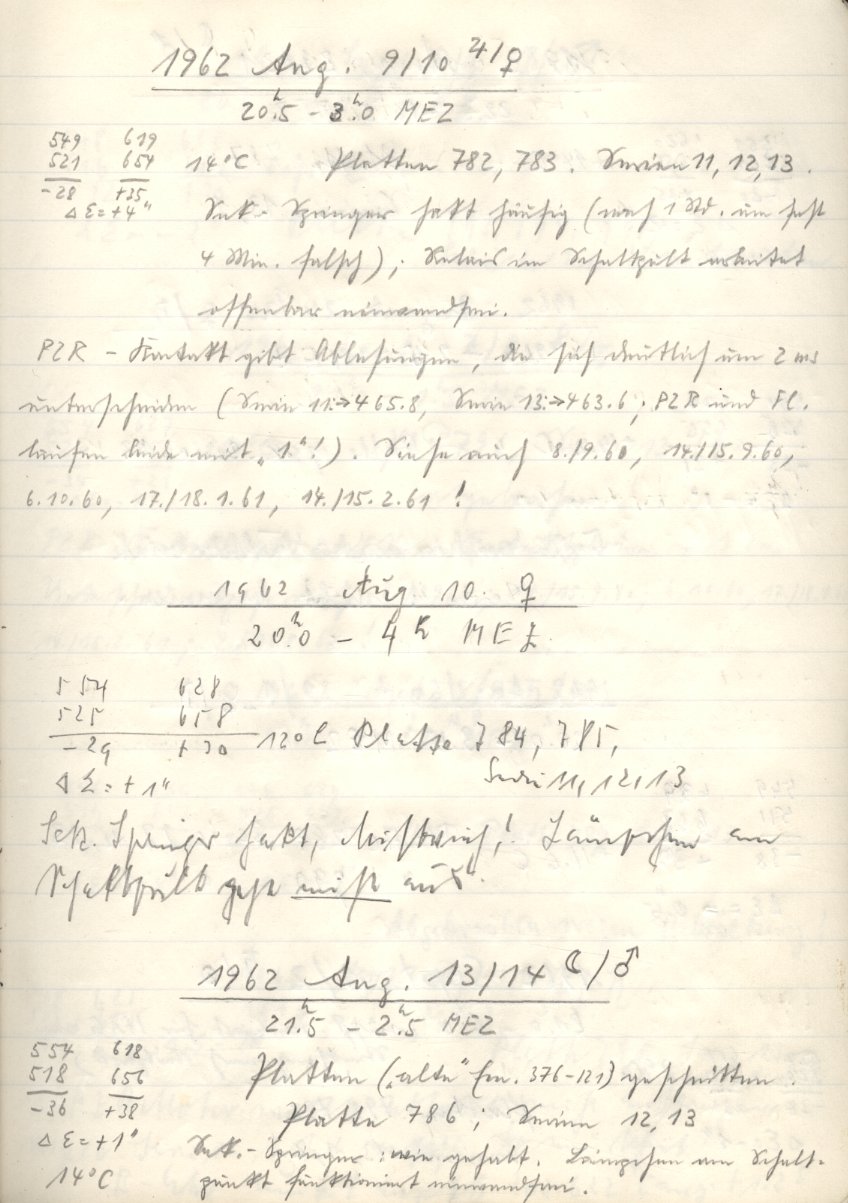 1962 Aug. 9/10 ♃/♀
20ʰ.5 - 3ʰ.0 MEZ
549 619
521 654 14°C Platten 782, 783. Serien 11, 12, 13.
-28 +35
Δ Σ = +4"
Sek.-Springer hakt häufig (nach 1 Std. um fast
4 Min. falsch); Relais im Schaltpult arbeitet
offenbar einwandfrei.
PZR - Kontakt gibt Ablesungen, die sich deutlich um 2 ms
unterscheiden (Serie 11:⇒465.8, Serie 13:⇒463.6; PZR und Fl.
laufen beide mit „1"!). Siehe auch 8./9.60, 14./15.9.60,
6.10.60, 17./18.1.61, 14./15.2.61 !
1962 Aug 10. ♀
20ʰ.0 - 4ʰ MEZ.
554 628
525 658
-29 +30 12°C Platte 784, 785,
Δ Σ = + 1" Serie 11, 12, 13
Sek. Springer hakt, ! Lämpchen am
Schaltpult geht nicht aus.
1962 Aug. 13/14 ☾/♂
21ʰ.5 - 2ʰ.5 MEZ
554 618
518 656 Platten („alte" Em. 376-121) geschnitten.
-36 +38 Platte 786; Serien 12, 13
Δ Σ = +1" Sek.-Springer: wie gehabt. Lämpchen am Schalt-
14°C punkt funktioniert einwandfrei.